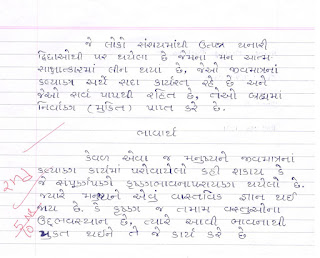 જે લોકો સંશયમાંથી ઉત્પન્ન થનારી
દ્વિધાઓથી પર થયેલા છે જેમનાં મન આત્મ
સાક્ષાત્કારમાં લીન થયા છે, જેઓ જીવમાત્રનાં
કલ્યાણ અર્થે સદા કાર્યરત રહે છે અને
જેઓ સર્વ પાપથી રહિત છે, તેઓ બ્રહ્મમાં
નિર્વાણ (મુક્તિ) પ્રાપ્ત કરે છે.
ભાવાર્થ
કેવળ એવા જ મનુષ્યને જીવમાત્રના
કલ્યાણ કાર્યમાં પરોવાયેલો કહી શકાય કે
જે સંપૂર્ણપણે કૃષ્ણભાવનાપરાયણ થયેલો છે.
જ્યારે મનુષ્યને એવું વાસ્તવિક જ્ઞાન થઈ
જાય છે. કે કૃષ્ણ જ તમામ વસ્તુઓના
ઉદ્દભવસ્થાન છે, ત્યારે આવી ભાવનાથી
મુક્ત થઈને તે જે કાર્ય કરે છે
2nd